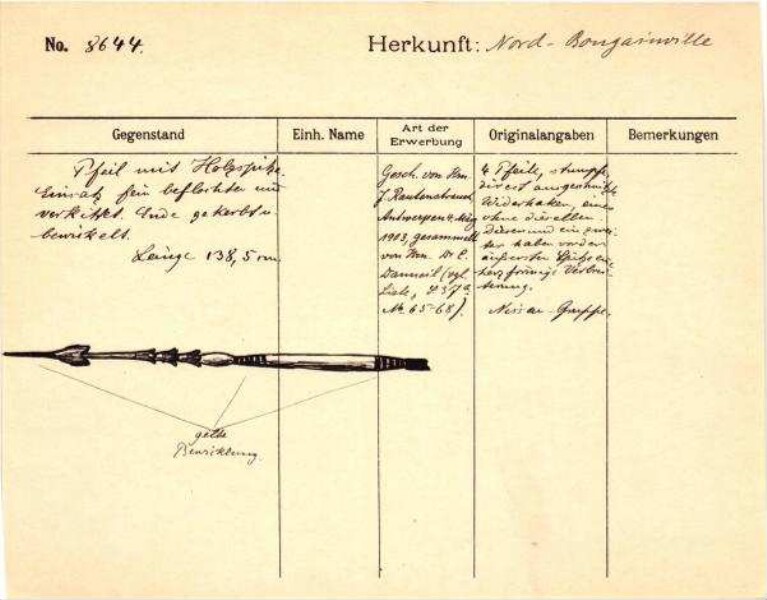 No. 8644.
Herkunft: Nord-Bougainville
Gegenstand
Einh. Name
Art der Erwerbung
Originalangaben
Bemerkungen
Pfeil mit Holzspitze.
Einsatz fein beflochten und
verkittet. Ende gekerbt u.
bewickelt.
Länge 138,5 cm
Gesch. von Hrn.
J. Rautenstrauch,
Antwerpen 4. Mrz
1903, gesammelt
von Hrn. Dr E.
Danneil (vgl.
Liste, S 37a
No 65-68).
4 Pfeile, stumpfe,
ausgeschnitzte
Widerhaken, einer
ohne dieselben.
Dieser und ein zwei-
ter haben vor der
äußersten Spitze eine
herzförmige Verbrei-
terung.
Nissan-Gruppe.
gelbe
Bewicklung.